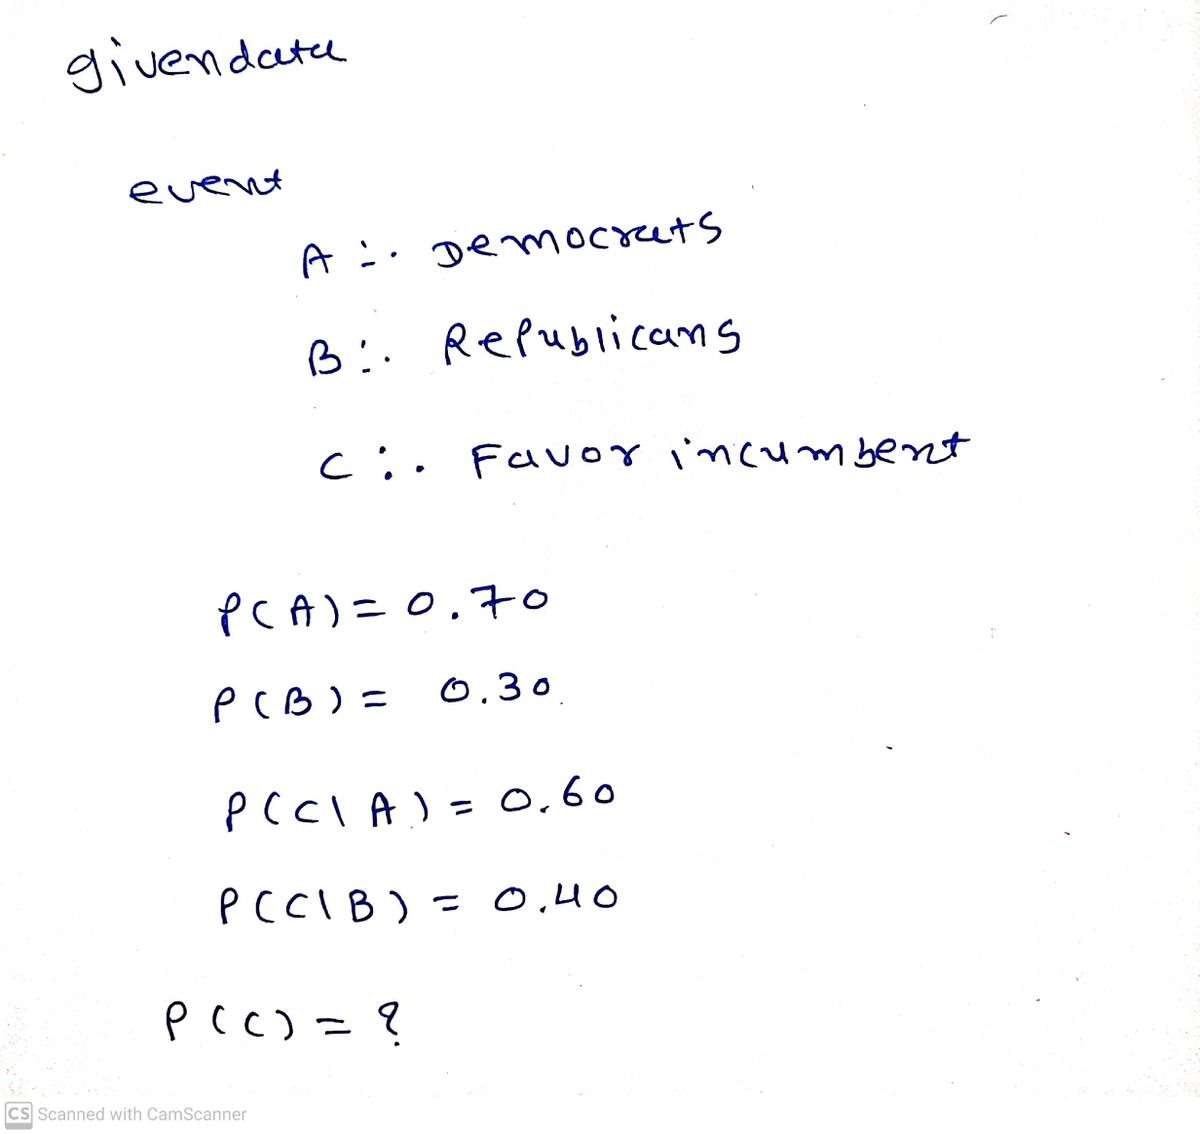 given data
event
A :- Democrats
B :- Republicans
C :- Favor incumbent
P(A) = 0.70
P(B) = 0.30
P(C|A) = 0.60
P(C|B) = 0.40
P(C) = ?
CS Scanned with CamScanner